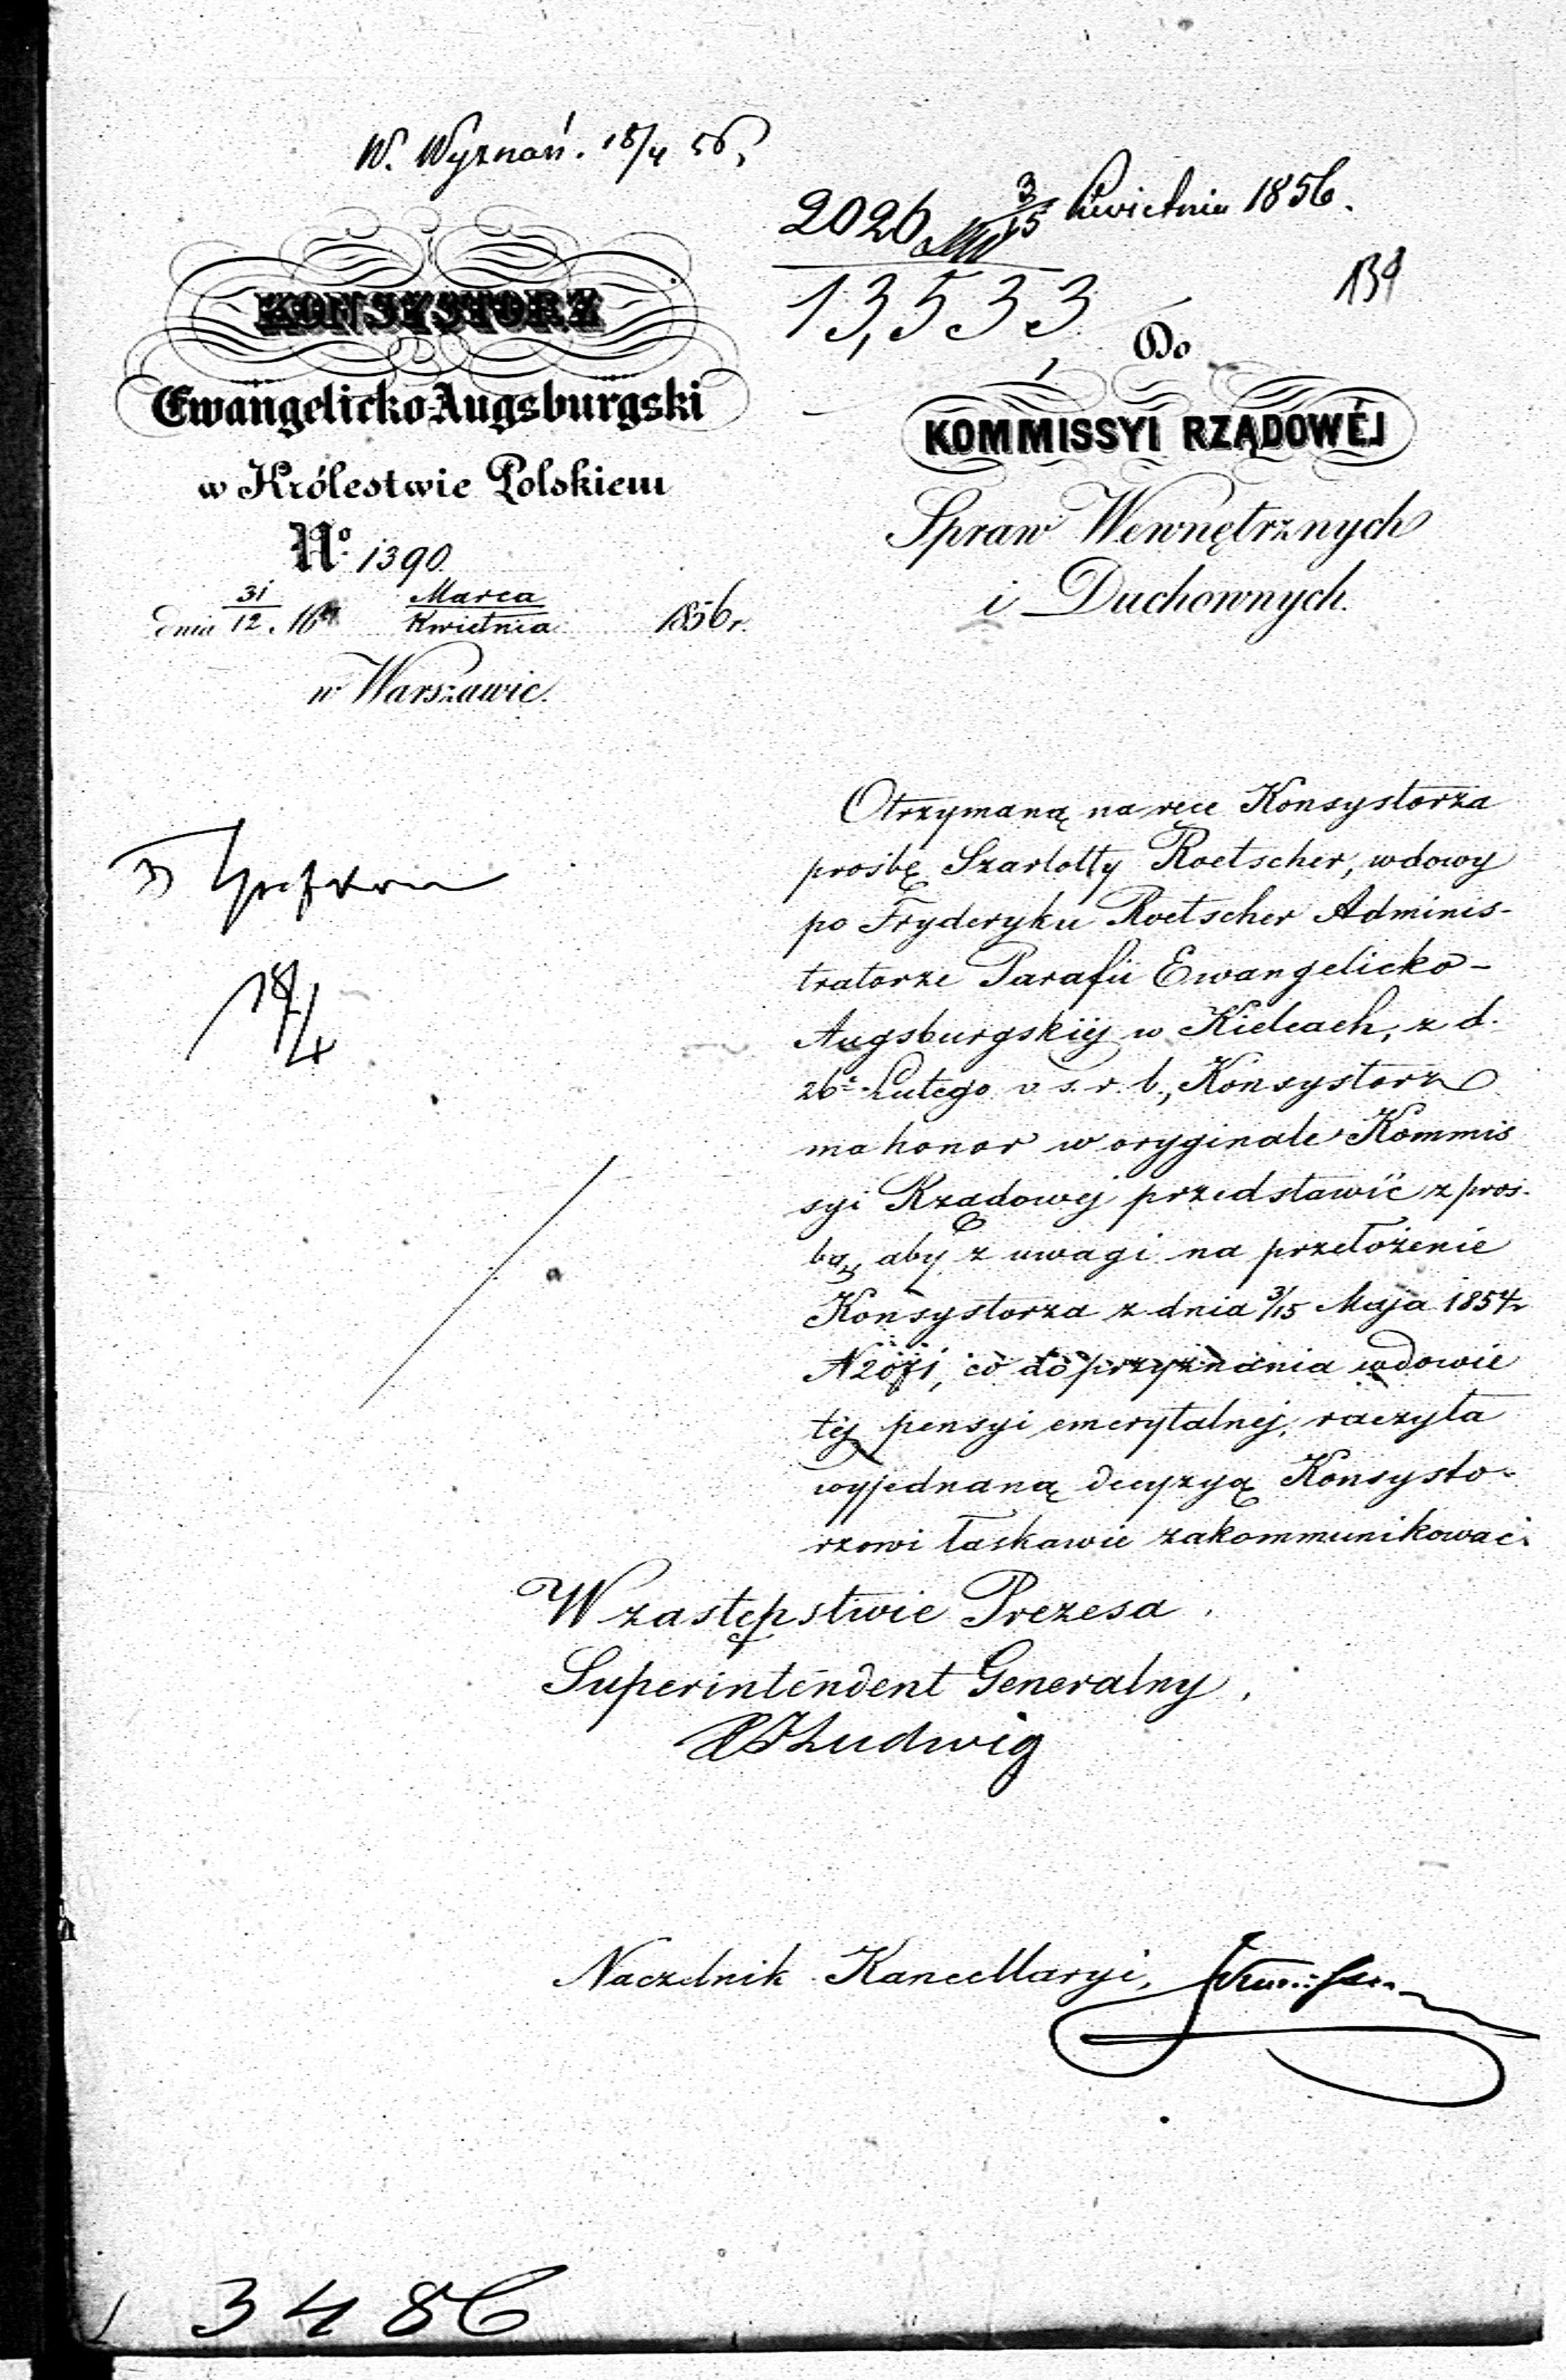 W. Wyznań. 18/4 56
2026 3/15 Kwietnia 1856.
13,533
134
KONSYSTORZ
Ewangelicko-Augsburgski
w Królestwie Polskiem
No. 1390.
dnia 31/12 Marca/Kwietnia 1856 r.
w Warszawie.
Do
KOMMISSYI RZĄDOWÉJ
Spraw Wewnętrznych
i Duchownych.
18/4
Otrzymaną na ręce Konsystorza
prośbę Szarlotty Roetscher, wdowy
po Fryderyku Roetscher Adminis-
tratorze Parafii Ewangelicko-
Augsburgskiéj w Kielcach, z d.
26 Lutego v. s. r. b., Konsystorz
ma honor w oryginale Kommis
syi Rządowej przedstawić z proś-
bą, aby z uwagi na przełożenie
Konsystorza z dnia 3/15 Maja 1854 r
N 2071, co do przyznania wdowie
téj pensyi emerytalnéj, raczyła
wyjednaną decyzyą Konsysto-
rzowi łaskawie zakommunikować.
W zastępstwie Prezesa,
Superintendent Generalny,
Ludwig
Naczelnik Kancellaryi,
3486